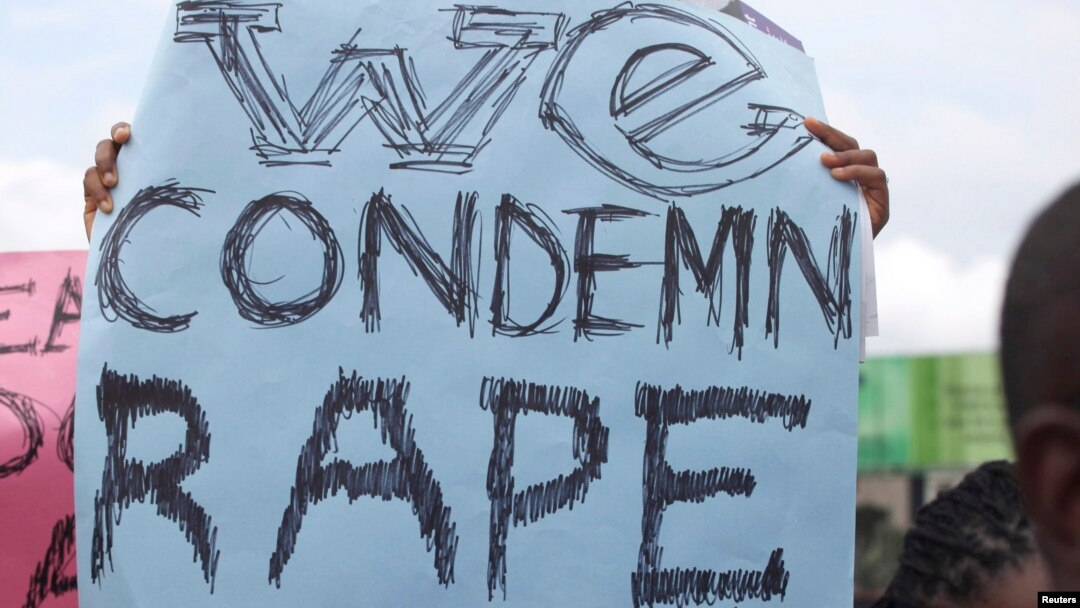 We
CONDEMN
RAPE
EA
Reuters